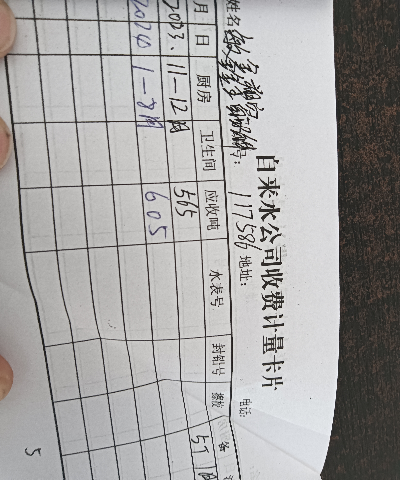 自来水公司收费计量卡片
姓名 号: 117586 地址: 电话:
月 日 厨房 卫生间 应收吨 水表号 封铅号 备
2023. 11-12月 565 51
1-8月 605
5